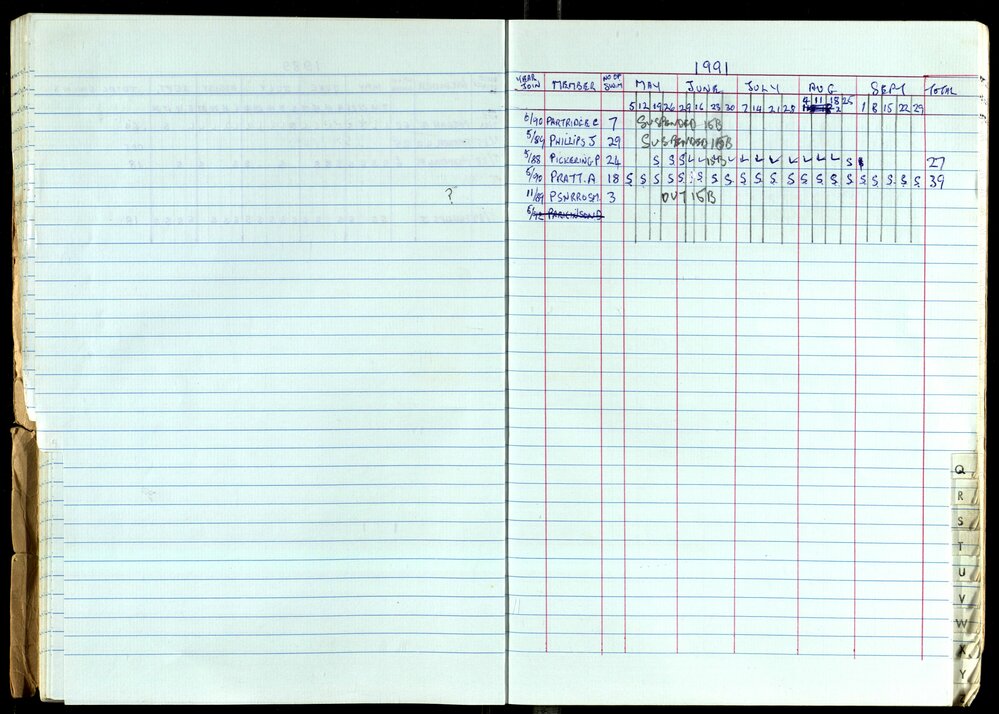 1991
YEAR JOIN MEMBER NO OF SWM MAY JUNE JULY AUG SEPT TOTAL
5 12 19 26 2 9 16 23 30 7 14 21 28 4 11 18 25 1 8 15 22 29
6/90 PARTRIDGE C 7 SUSPENDED 15B
5/89 PHILLIPS J 29 SUSPENDED 15B
5/88 PICKERING P 24 S S S L L 15B L L L L L L L L S 27
6/90 PRATT. A 18 S S S S S S S S S S S S S S S S S S S S S 39
? 11/89 3 OUT 15B
PARKINSON D
Q
R
S
T
U
V
W
X
Y